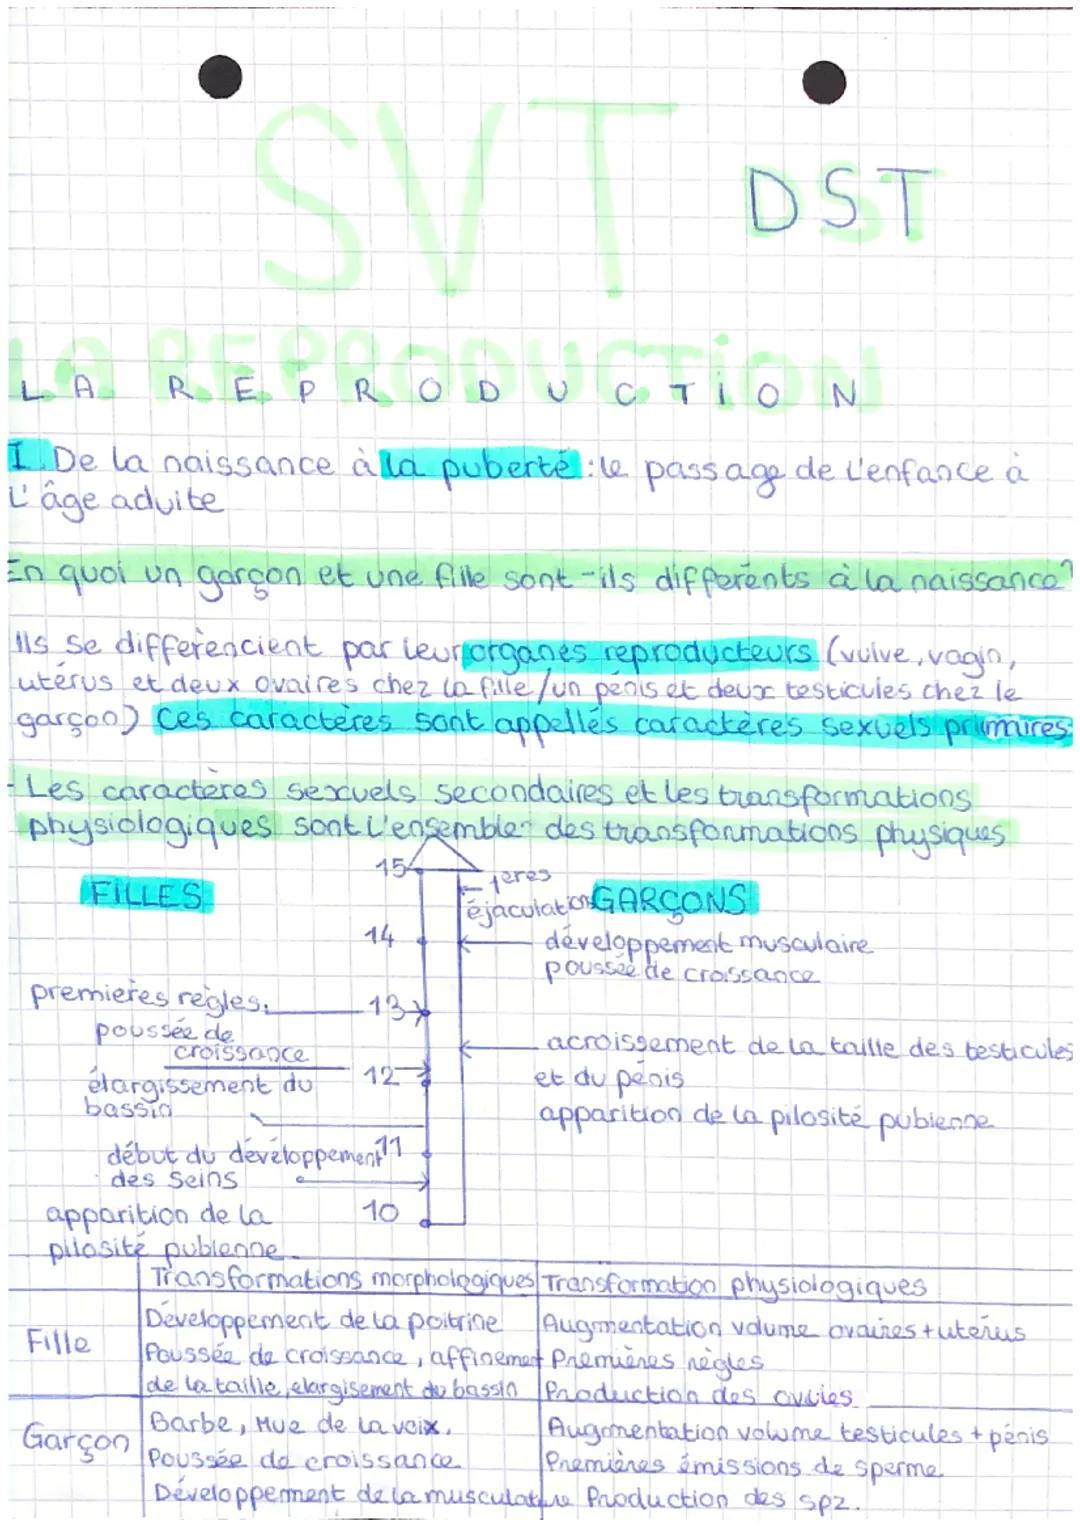 SVT
DST
LA REPRODUCTION
LA REPRODUCTION
I. De la naissance à la puberté : le passage de l'enfance à
L'âge adulte
En quoi un garçon et une fille sont-ils différents à la naissance?
Ils se différencient par leur organes reproducteurs (vulve, vagin,
utérus et deux ovaires chez la fille/un pénis et deux testicules chez le
garçon) Ces caractères sont appellés caractères sexuels primaires.
- Les caractères sexuels secondaires et les transformations
physiologiques sont l'ensemble des transformations physiques
15
1eres
FILLES
éjaculations GARÇONS
14
développement musculaire
poussée de croissance
premières règles.
13
poussée de
croissance
acroissement de la taille des testicules
élargissement du
12
et du pénis
bassin
apparition de la pilosité pubienne
début du développement
11
des seins
apparition de la
10
pilosité pubienne
Transformations morphologiques Transformation physiologiques
Fille
Développement de la poitrine
Poussée de croissance, affinement
de la taille, elargisement du bassin
Augmentation volume ovaires + utérus
Premières règles
Production des ovules
Garçon
Barbe, Mue de la voix,
Poussée de croissance
Développement de la musculature
Augmentation volume testicules + pénis
Premières émissions de sperme
Production des spz.